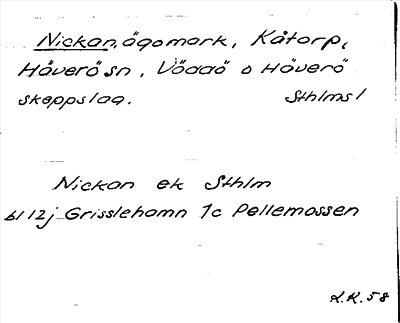 Nickan, ägomark, Kåtorp,
Häverö sn, Väddö o Häverö
skeppslag. Sthlms l
Nickan ek Sthlm
bl 12j Grisslehamn 1c Pellemossen
L.K. 58